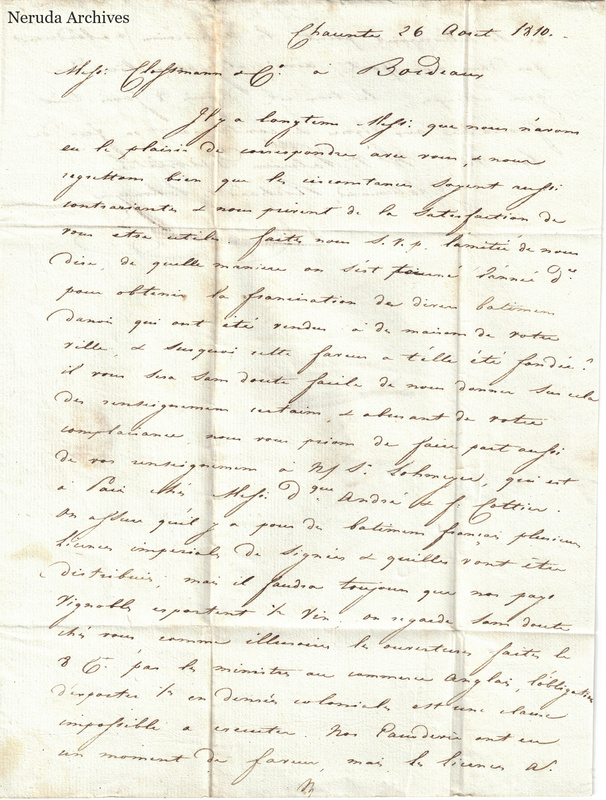 Neruda Archives
Charente 26 Aout 1810.
Messr. Clossmann & Cie. à Bordeaux
Il y a longtems Messr. que nous n'avons
eu le plaisir de correspondre avec vous, & nous
regrettons bien que les circonstances soyent aussi
contrariantes & nous privent de la satisfaction de
vous etre utile. faites nous S.V.p. l'amitié de nous
dire, de quelle maniere on s'est tourné l'année dre.
pour obtenir la francisation de divers batimens
danois qui ont été vendus à de maisons de votre
ville, & surquoi cette faveur a t'elle été fondée?
il vous sera sans doute facile de nous donner sur cela
des renseignemens certains, & abusant de votre
complaisance, nous vous prions de faire part aussi
de vos renseignemens à qui est
à Paris chés Messr. Dque André & f. Cottier.
On assure qu'il y a pour des batimens français plusieurs
Licences imperiales de signées & qu'elles vont être
distribuées; mais il faudra toujours que nos pays
Vignobles exportent Vin; on regarde sans doute
chés vous comme illusoires les ouvertures faites le
8 Ct. par les ministres au commerce Anglais, l'obligation
d'exporter en denrées coloniales est une clause
impossible a executer. Nos Eaudevie ont eu
un moment de faveur, mais les licences